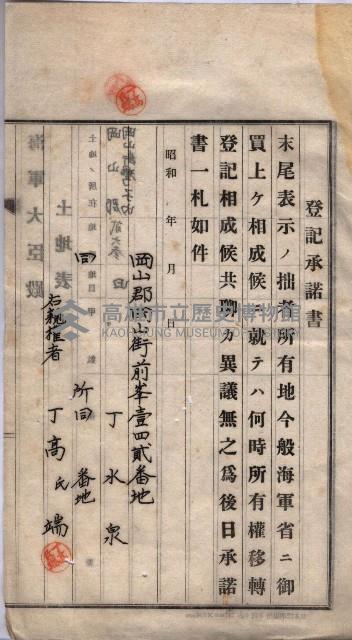 登記承諾書
末尾表示ノ拙者所有地今般海軍省ニ御
買上ケ相成候ニ就テハ何時所有權移轉
登記相成候共聊カ異議無之爲後日承諾
書一札如件
昭和　年　月　日
岡山郡岡山街前峯壹四貳番地
丁水泉
同所同番地
右親權者　丁高氏端
海軍大臣殿
土地表
土地ノ所在
高雄市立歷史博物館
KAOHSIUNG MUSEUM OF HISTORY